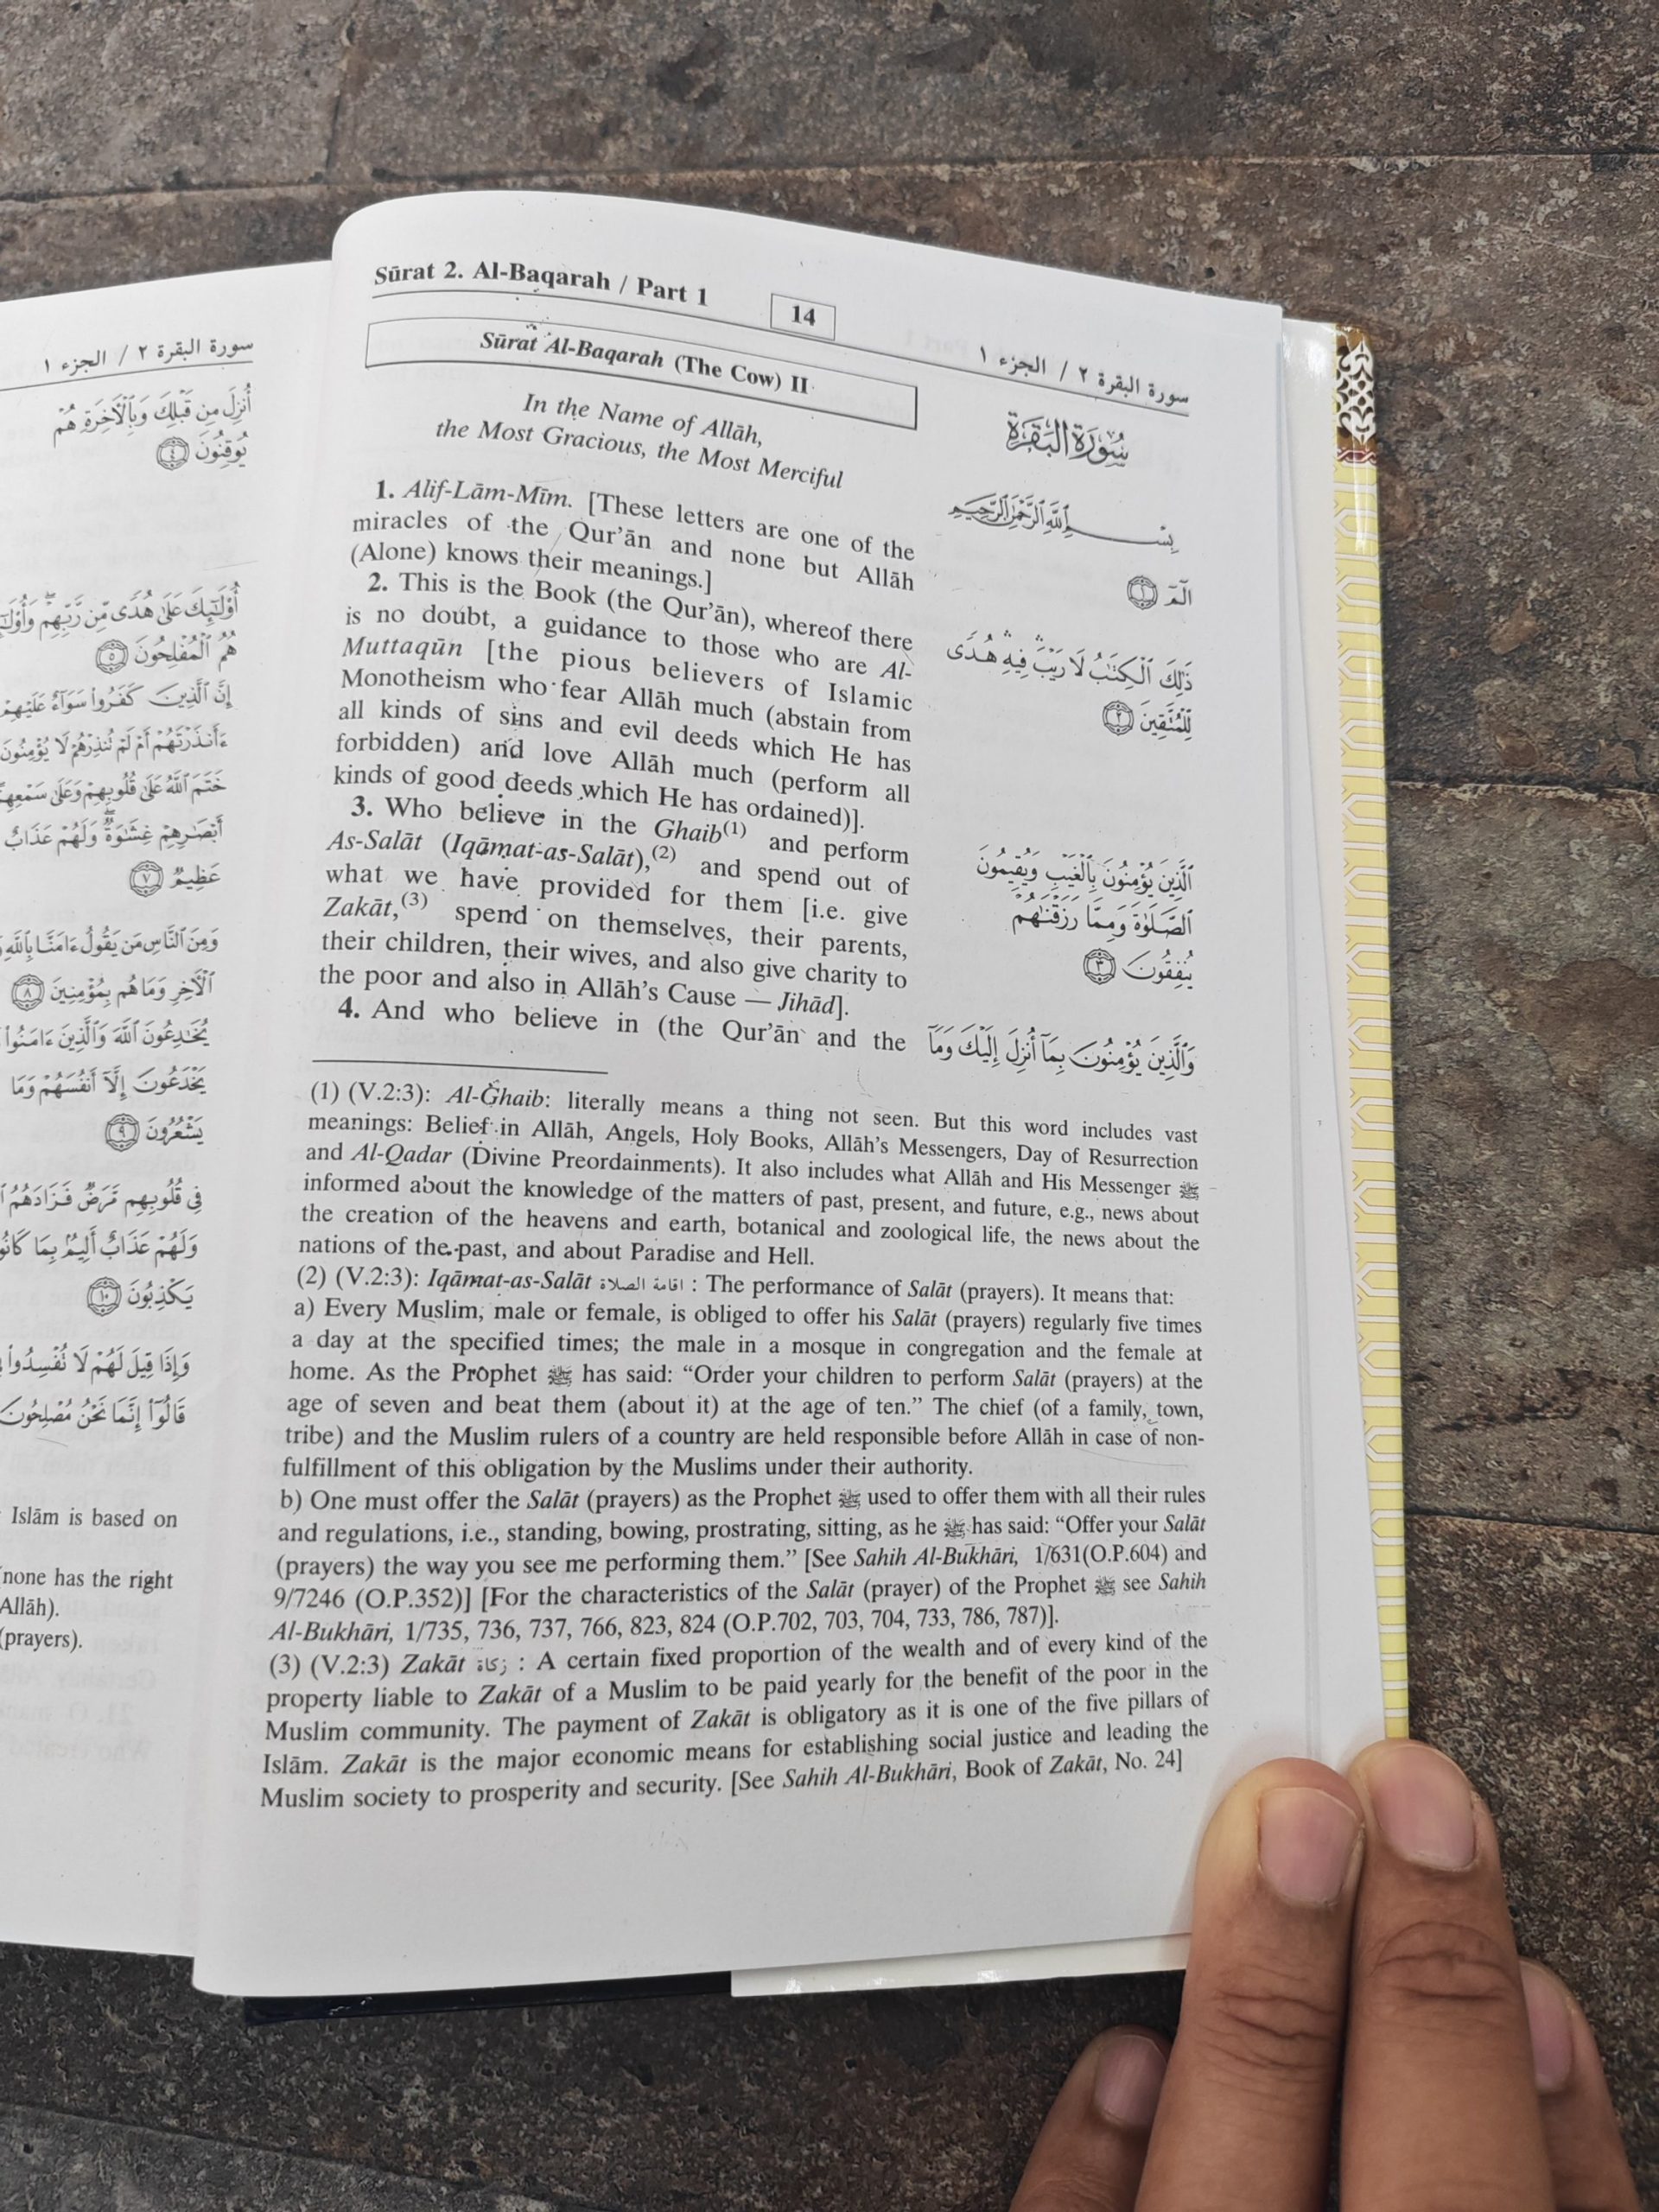 سورة البقرة ٢ / الجزء ١
أُنزِلَ مِن قَبْلِكَ وَبِٱلْءَاخِرَةِ هُمْ
يُوقِنُونَ ٤
أُو۟لَٰٓئِكَ عَلَىٰ هُدًى مِّن رَّبِّهِمْ ۖ
هُمُ ٱلْمُفْلِحُونَ ٥
إِنَّ ٱلَّذِينَ كَفَرُوا۟ سَوَآءٌ عَلَيْهِمْ
ءَأَنذَرْتَهُمْ أَمْ لَمْ تُنذِرْهُمْ لَا يُؤْمِنُونَ
خَتَمَ ٱللَّهُ عَلَىٰ قُلُوبِهِمْ وَعَلَىٰ سَمْعِهِمْ
أَبْصَٰرِهِمْ غِشَٰوَةٌ ۖ وَلَهُمْ عَذَابٌ
عَظِيمٌ ٧
وَمِنَ ٱلنَّاسِ مَن يَقُولُ ءَامَنَّا بِٱللَّهِ
ٱلْءَاخِرِ وَمَا هُم بِمُؤْمِنِينَ ٨
يُخَٰدِعُونَ ٱللَّهَ وَٱلَّذِينَ ءَامَنُوا۟
يَخْدَعُونَ إِلَّآ أَنفُسَهُمْ وَمَا
يَشْعُرُونَ ٩
فِى قُلُوبِهِم مَّرَضٌ فَزَادَهُمُ
وَلَهُمْ عَذَابٌ أَلِيمٌۢ بِمَا
يَكْذِبُونَ ١٠
وَإِذَا قِيلَ لَهُمْ لَا تُفْسِدُوا۟
قَالُوٓا۟ إِنَّمَا نَحْنُ مُصْلِحُونَ
Islām is based on
none has the right
Allāh).
(prayers).
Sūrat 2. Al-Baqarah / Part 1
14
سورة البقرة ٢ / الجزء ١
Sūrat Al-Baqarah (The Cow) II
سُورَةُ البَقَرَةِ
In the Name of Allāh,
the Most Gracious, the Most Merciful
بِسْمِ ٱللَّهِ ٱلرَّحْمَٰنِ ٱلرَّحِيمِ
1. Alif-Lām-Mīm. [These letters are one of the
miracles of the Qur’ān and none but Allāh
(Alone) knows their meanings.]
الٓمٓ ١
2. This is the Book (the Qur’ān), whereof there
is no doubt, a guidance to those who are Al-
Muttaqūn [the pious believers of Islamic
Monotheism who fear Allāh much (abstain from
all kinds of sins and evil deeds which He has
forbidden) and love Allāh much (perform all
kinds of good deeds which He has ordained)].
ذَٰلِكَ ٱلْكِتَٰبُ لَا رَيْبَ ۛ فِيهِ ۛ هُدًى
لِّلْمُتَّقِينَ ٢
3. Who believe in the Ghaib(1) and perform
As-Salāt (Iqāmat-as-Salāt),(2) and spend out of
what we have provided for them [i.e. give
Zakāt,(3) spend on themselves, their parents,
their children, their wives, and also give charity to
the poor and also in Allāh’s Cause — Jihād].
ٱلَّذِينَ يُؤْمِنُونَ بِٱلْغَيْبِ وَيُقِيمُونَ
ٱلصَّلَوٰةَ وَمِمَّا رَزَقْنَٰهُمْ
يُنفِقُونَ ٣
4. And who believe in (the Qur’ān and the
وَٱلَّذِينَ يُؤْمِنُونَ بِمَآ أُنزِلَ إِلَيْكَ وَمَآ
(1) (V.2:3): Al-Ghaib: literally means a thing not seen. But this word includes vast
meanings: Belief in Allāh, Angels, Holy Books, Allāh’s Messengers, Day of Resurrection
and Al-Qadar (Divine Preordainments). It also includes what Allāh and His Messenger ﷺ
informed about the knowledge of the matters of past, present, and future, e.g., news about
the creation of the heavens and earth, botanical and zoological life, the news about the
nations of the past, and about Paradise and Hell.
(2) (V.2:3): Iqāmat-as-Salāt اقامة الصلاة : The performance of Salāt (prayers). It means that:
a) Every Muslim, male or female, is obliged to offer his Salāt (prayers) regularly five times
a day at the specified times; the male in a mosque in congregation and the female at
home. As the Prophet ﷺ has said: “Order your children to perform Salāt (prayers) at the
age of seven and beat them (about it) at the age of ten.” The chief (of a family, town,
tribe) and the Muslim rulers of a country are held responsible before Allāh in case of non-
fulfillment of this obligation by the Muslims under their authority.
b) One must offer the Salāt (prayers) as the Prophet ﷺ used to offer them with all their rules
and regulations, i.e., standing, bowing, prostrating, sitting, as he ﷺ has said: “Offer your Salāt
(prayers) the way you see me performing them.” [See Sahih Al-Bukhāri, 1/631(O.P.604) and
9/7246 (O.P.352)] [For the characteristics of the Salāt (prayer) of the Prophet ﷺ see Sahih
Al-Bukhāri, 1/735, 736, 737, 766, 823, 824 (O.P.702, 703, 704, 733, 786, 787)].
(3) (V.2:3) Zakāt زكاة : A certain fixed proportion of the wealth and of every kind of the
property liable to Zakāt of a Muslim to be paid yearly for the benefit of the poor in the
Muslim community. The payment of Zakāt is obligatory as it is one of the five pillars of
Islām. Zakāt is the major economic means for establishing social justice and leading the
Muslim society to prosperity and security. [See Sahih Al-Bukhāri, Book of Zakāt, No. 24]